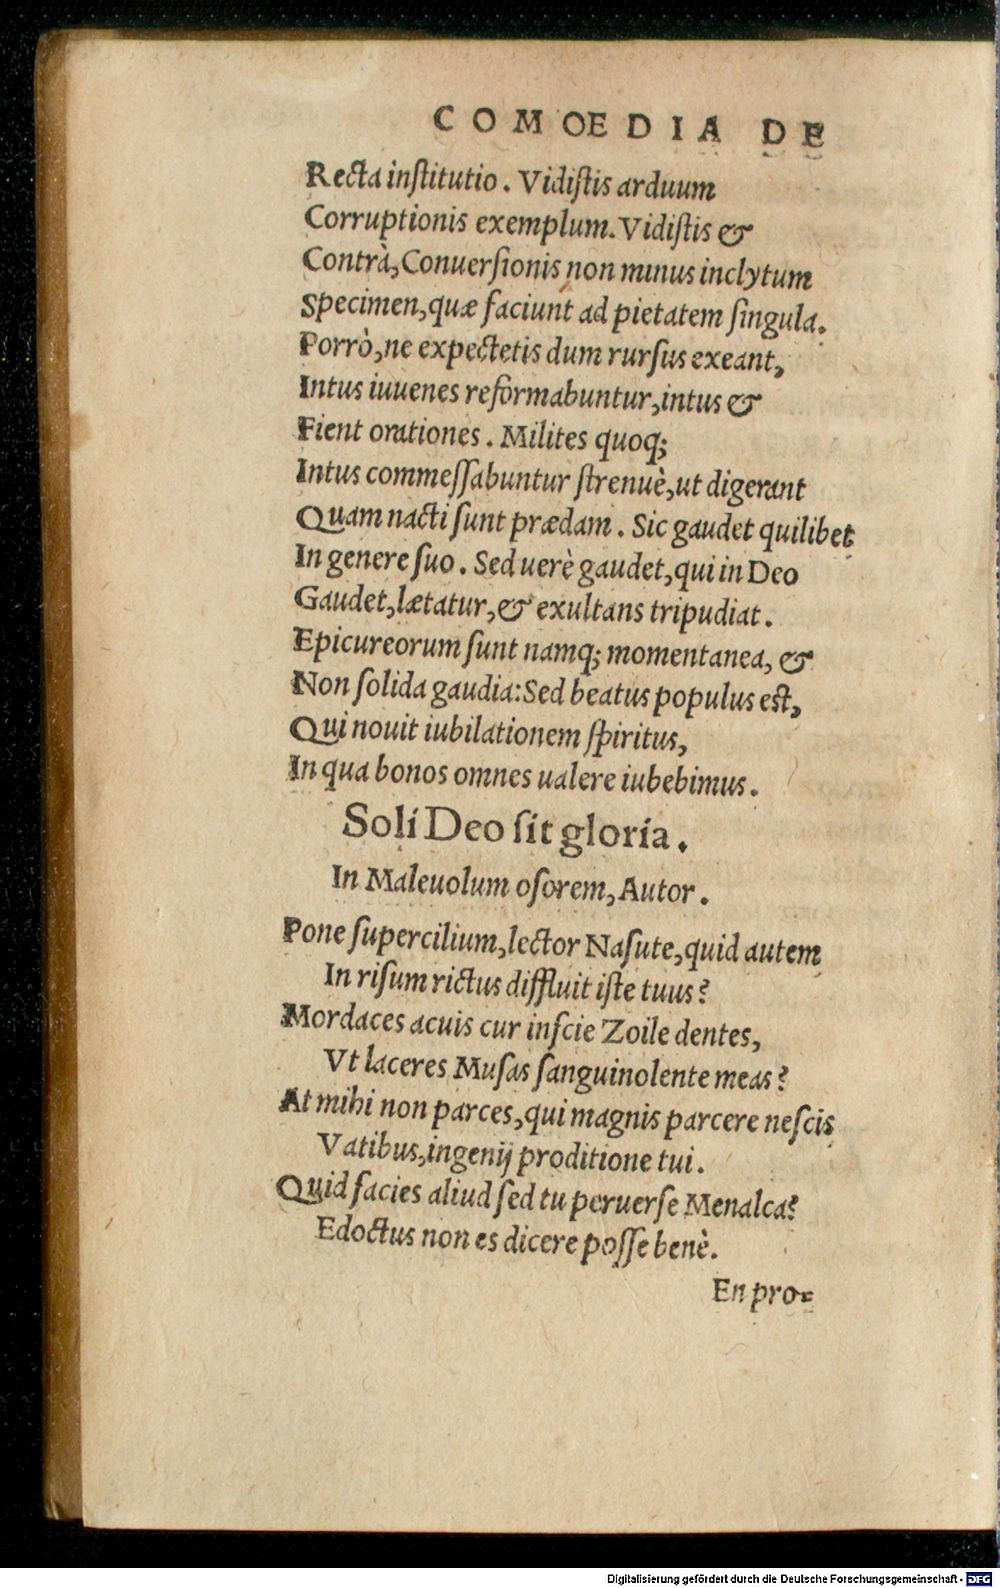 COMOEDIA DE
Recta institutio. Vidistis arduum
Corruptionis exemplum. Vidistis &
Contrà, Conuersionis non minus inclytum
Specimen, quæ faciunt ad pietatem singula.
Porrò, ne expectetis dum rursus exeant,
Intus iuuenes reformabuntur, intus &
Fient orationes. Milites quoq;
Intus commessabuntur strenuè, ut digerant
Quam nacti sunt prædam. Sic gaudet quilibet
In genere suo. Sed uerè gaudet, qui in Deo
Gaudet, lætatur, & exultans tripudiat.
Epicureorum sunt namq; momentanea, &
Non solida gaudia: Sed beatus populus est,
Qui nouit iubilationem spiritus,
In qua bonos omnes ualere iubebimus.
Soli Deo sit gloria.
In Maleuolum osorem, Autor.
Pone supercilium, lector Nasute, quid autem
In risum rictus diffluit iste tuus?
Mordaces acuis cur inscie Zoile dentes,
Vt laceres Musas sanguinolente meas?
At mihi non parces, qui magnis parcere nescis
Vatibus, ingenij proditione tui.
Quid facies aliud sed tu peruerse Menalca?
Edoctus non es dicere posse benè.
En pro-
Digitalisierung gefördert durch die Deutsche Forschungsgemeinschaft - DFG